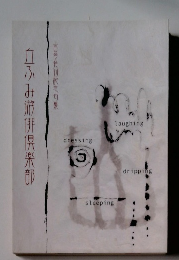 立ふみ游俳倶楽部
laughing
pressing
dripping
stepping